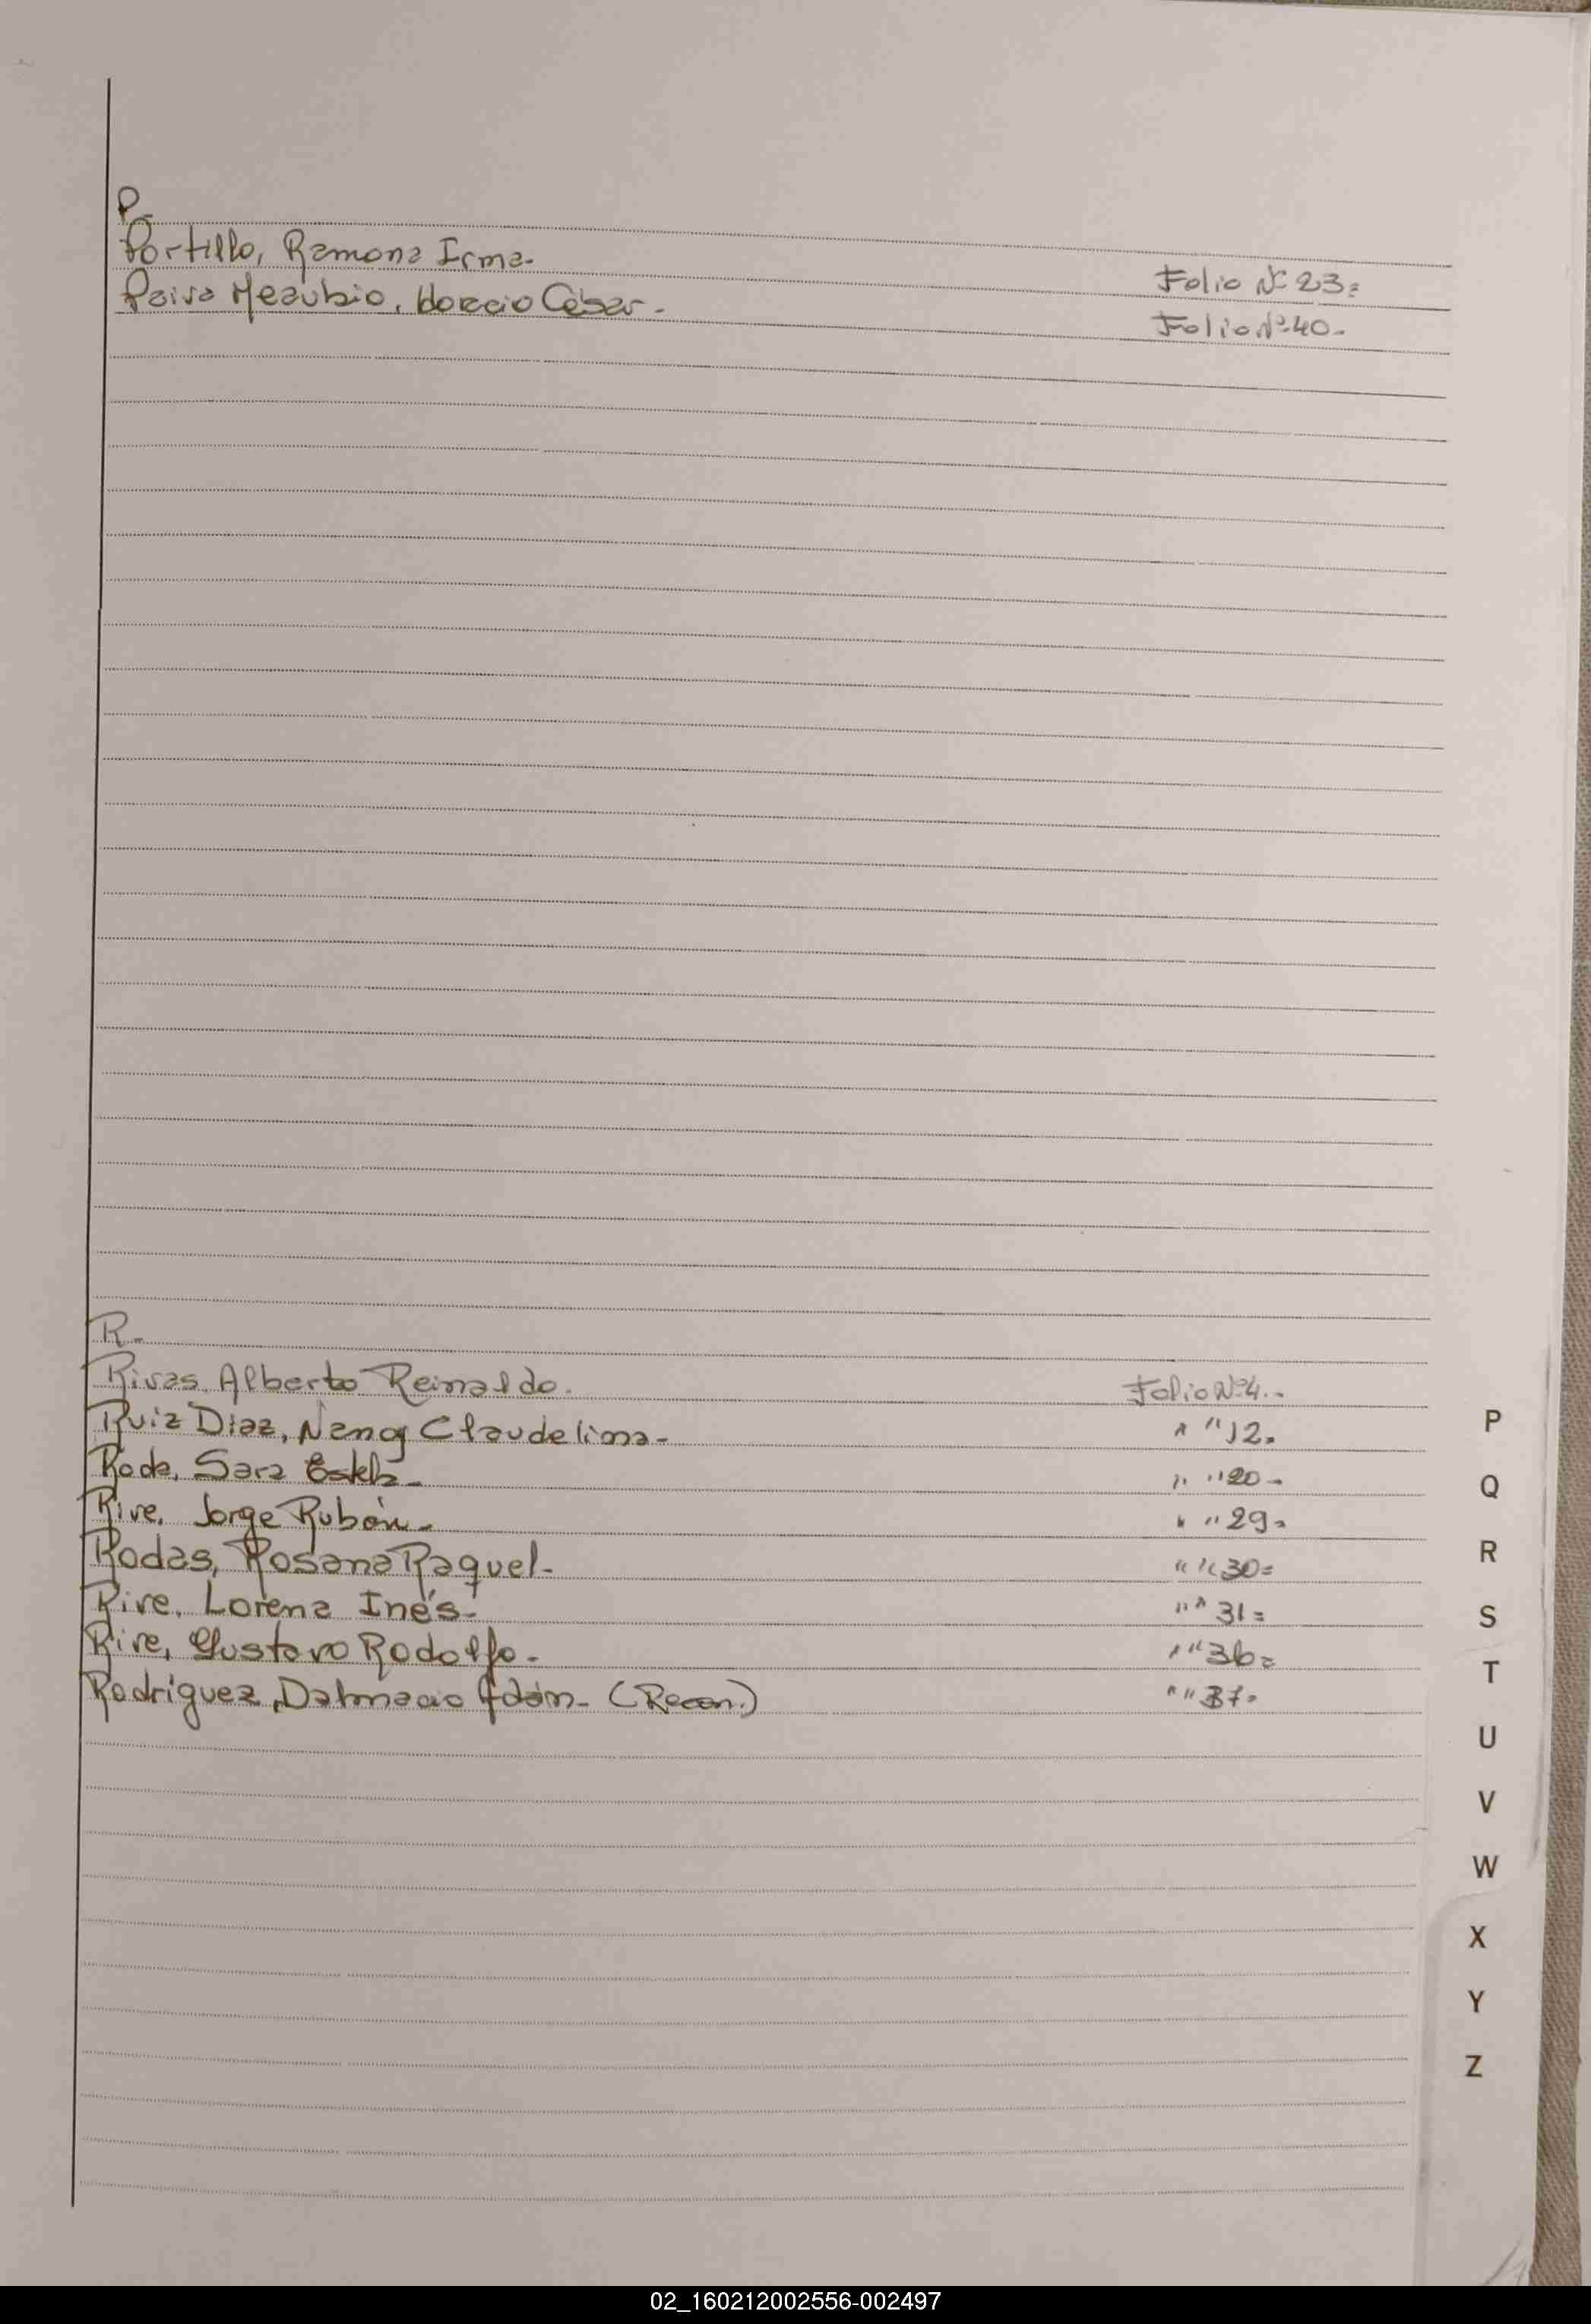 P-
Portillo, Ramona Irma. Folio Nº 23=
Paiva Meaubio, Horacio César. Folio Nº 40-
R-
Rivas, Alberto Reinaldo. Folio Nº 4.-
Ruiz Diaz, Nancy Claudelina- " " 12.
Rode, Sara - " " 20-
Rive, Jorge Rubén- " " 29-
Rodas, Rosana Raquel- " " 30=
Rive, Lorena Inés- " " 31=
Rive, Gustavo Rodolfo- " " 36=
Rodriguez, Dalmacio Adán- (Recon.) " " 37-
P
Q
R
S
T
U
V
W
X
Y
Z
02_160212002556-002497